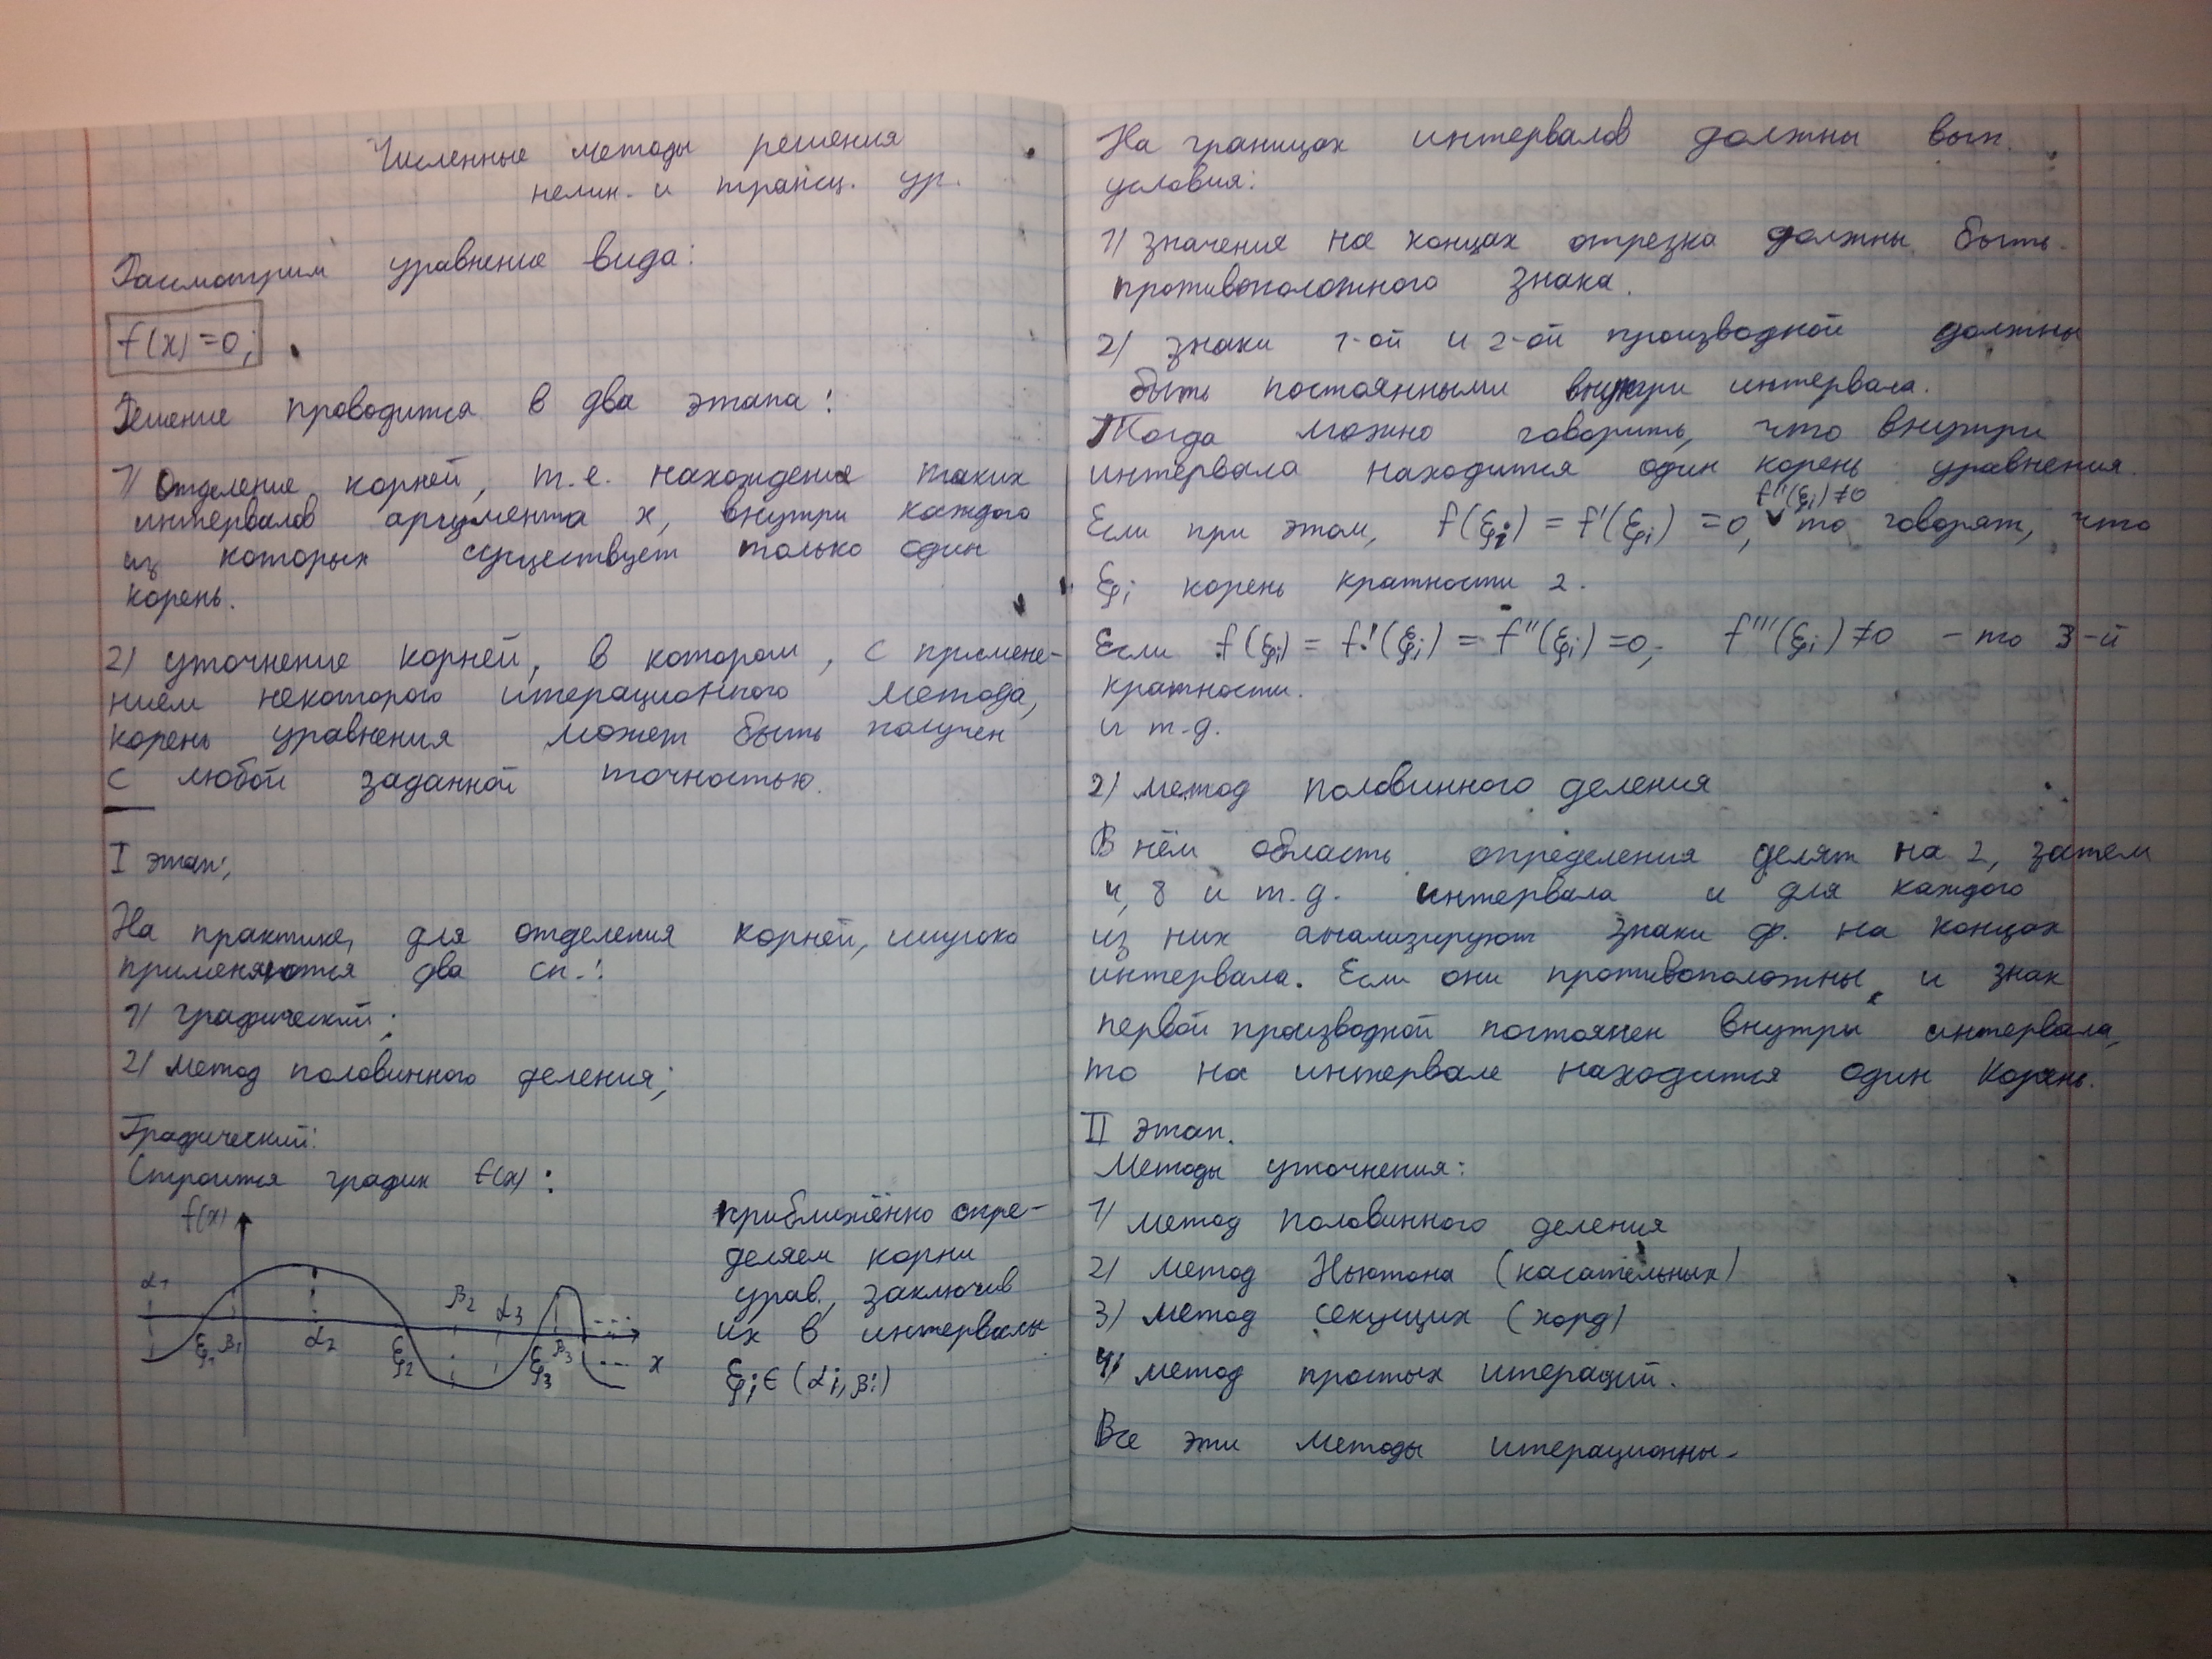 Численные методы решения
нелин. и трансц. ур.
Рассмотрим уравнение вида:
f(x)=0;
Решение проводится в два этапа:
1) Отделение корней, т.е. нахождение таких
интервалов аргумента x, внутри каждого
из которых существует только один
корень.
2) уточнение корней, в котором, с примене-
нием некоторого итерационного метода,
корень уравнения может быть получен
с любой заданной точностью.
I этап;
На практике, для отделения корней, широко
применяются два сп.:
1) графический;
2) метод половинного деления;
Графический:
Строится график f(x):
f(x)
α1 ξ1 β1 α2 ξ2 β2 α3 ξ3 β3 x
приближённо опре-
деляем корни
урав., заключив
их в интервалы
ξi ∈ (αi, βi)
На границах интервалов должны вып.
условия:
1) значения на концах отрезка должны быть
противоположного знака.
2) знаки 1-ой и 2-ой производной должны
быть постоянными внутри интервала.
Тогда можно говорить, что внутри
интервала находится один корень уравнения.
f''(ξi)≠0
Если при этом, f(ξi) = f'(ξi) =0, то говорят, что
ξi корень кратности 2.
Если f(ξi) = f'(ξi) = f''(ξi) =0; f'''(ξi) ≠0 - то 3-й
кратности.
и т.д.
2) метод половинного деления
В нём область определения делят на 2, затем
4, 8 и т.д. интервала и для каждого
из них анализируют знаки ф. на концах
интервала. Если они противоположны, и знак
первой производной постоянен внутри интервала,
то на интервале находится один корень.
II этап.
Методы уточнения:
1) метод половинного деления
2) метод Ньютона (касательных)
3) метод секущих (хорд)
4) метод простых итераций.
Все эти методы итерационны-